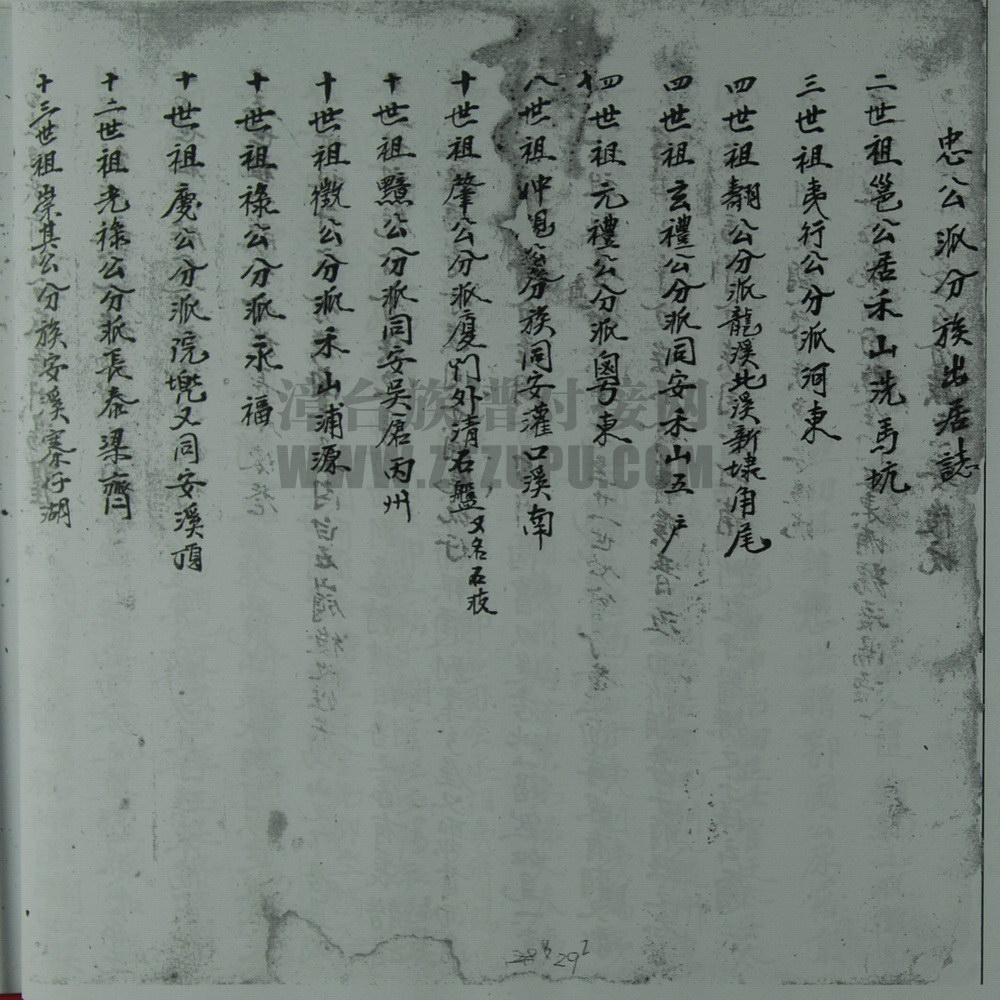 忠公派分族出居誌
二世祖邕公居禾山洗馬坑
三世祖夷行公分派河東
四世祖翻公分派龍溪北溪新埭角尾
四世祖玄禮公分派同安禾山五户
十四世祖元禮公分派粵東
八世祖仲 公分族同安灌口溪南
十世祖肇公分派廈門外清石盤又名石
十世祖黯公分派同安吳厝丙州
十世祖徵公分派禾山浦源
十世祖祿公分派永福
十世祖慶公分派院 又同安溪頭
十二世祖光祿公分派長泰梁齊
十三世祖崇其公分族安溪寨仔湖
漳台族谱对接网
WWW.ZTZUPU.COM
29